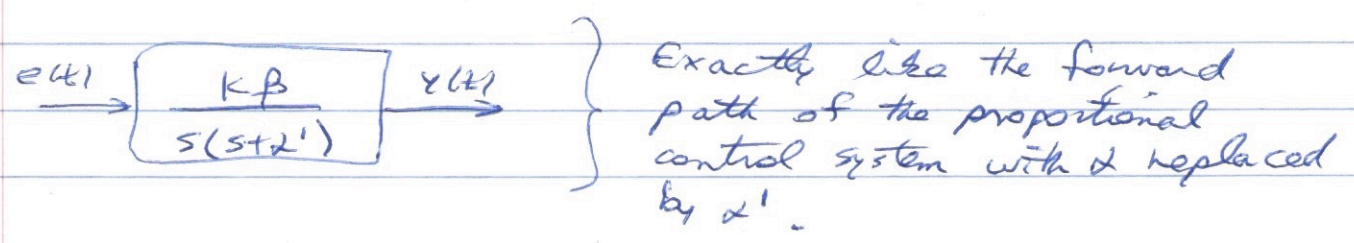 e(t)
Kβ
s(s+α')
y(t)
Exactly like the forward
path of the proportional
control system with α replaced
by α'.